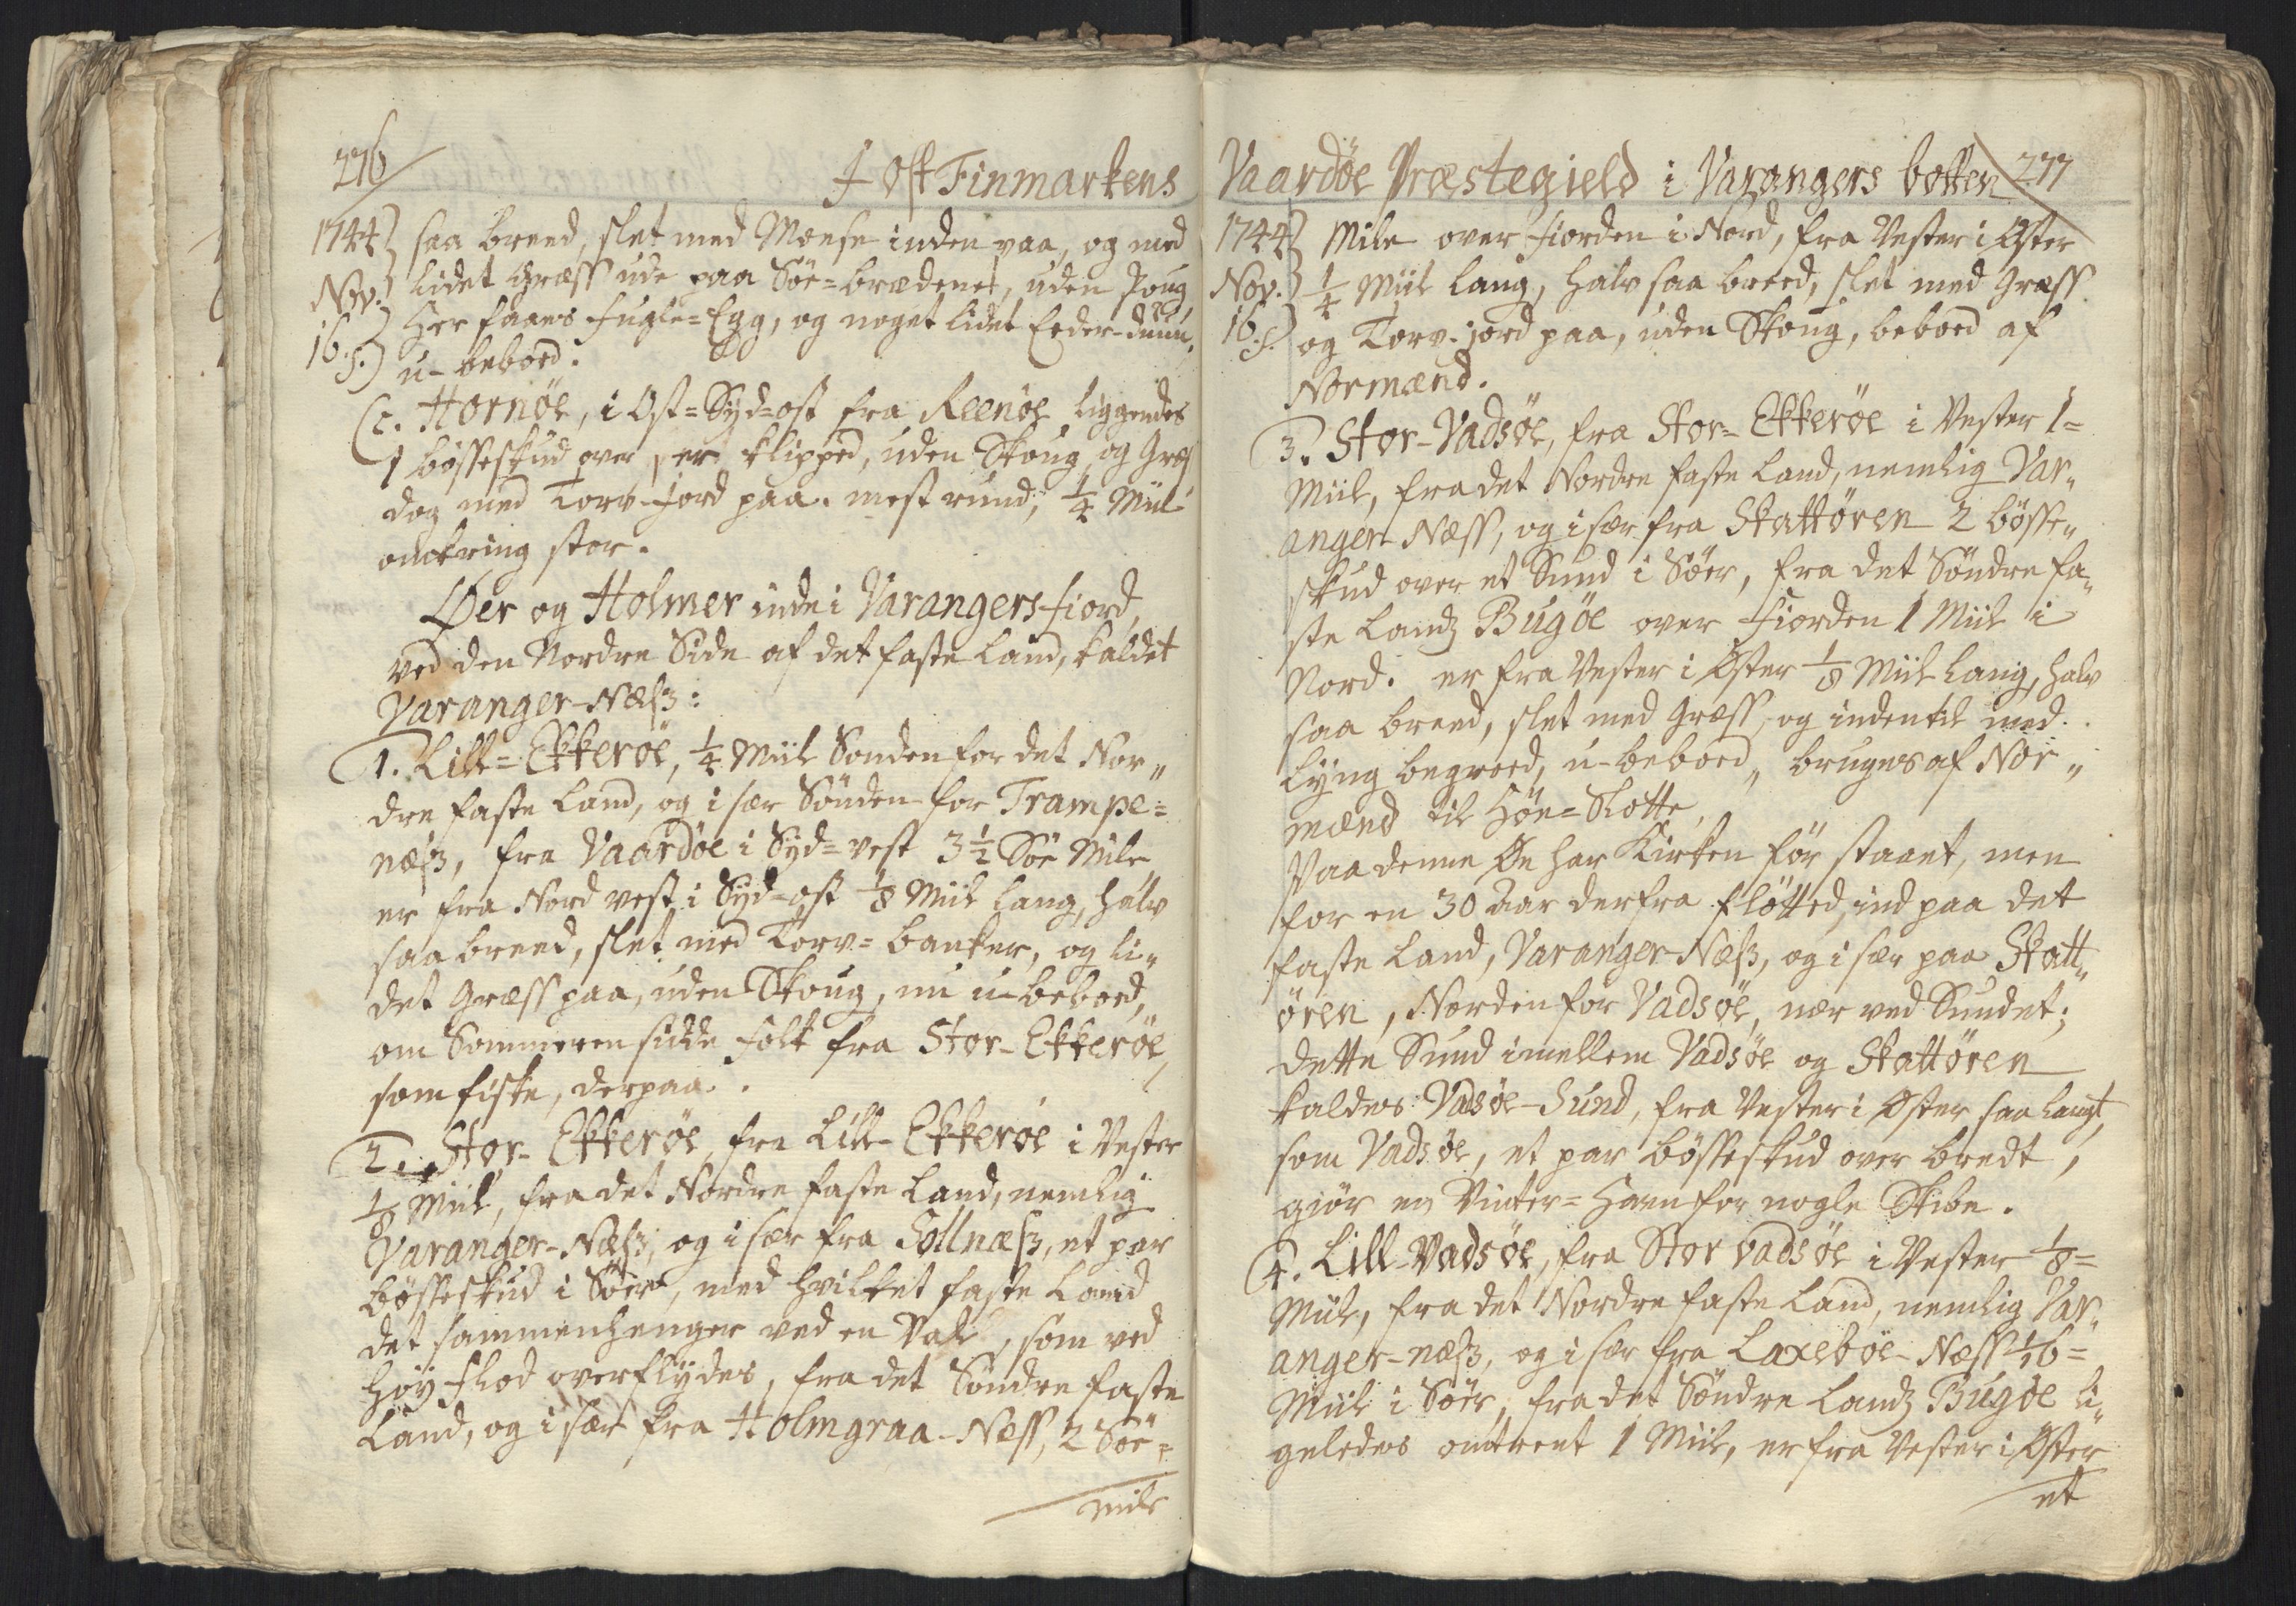 276
I Ost Finmarkens
1744
Nov.
16. s.
saa breed, slet med Moese inden paa, og med
lidet Græss ude paa Söe=brædenet, uden Skoug
Her faaes fugle=Egg, og noget lidet Eeder-duun,
u-beboed.
c. Hornöe, i Ost=Syd=ost fra Reenöe liggendes
1 bösseskud over, er klipped, uden Skoug, og Græs
dog med Torv-Jord paa. mest rund, 1/4 Miil
omkring stor.
Øer og Holmer inde i Varangersfiord,
ved den Nordre Side af det faste Land, kaldet
Varanger-Næss:
1. Lill=Ekkeröe, 1/4 Miil Sonden for det Nor„
dre faste Land, og i sær Sönden for Trampe=
næss, fra Vaardöe i Syd=vest 3 1/2 Söe Mile
er fra Nord vest i Syd=ost 1/8 Miil lang, halv
saa breed, slet med Torv=banker, og li„
det Græss paa, uden Skoug, nu u-beboed,
om Sommeren sidde folk fra Stor-Ekkeröe,
som fiske, derpaa.
2. Stor-Ekkeröe, fra Lill-Ekkeröe i Vester
1/8 Miil, fra det Nordre faste Land, nemlig
Varanger-Næss, og i sær fra Sollnæss, et par
bösseskud i Söer, med hvilket faste Land
det sammenhenger ved en Vall, som ved
Höy-flod overflydes, fra det Söndre faste
Land, og i sær fra Holmgraa-Næss, 2 Söe=
mile
Vaardöe Præstegield i Varangers botten
277
1744
Nov.
16. s.
Mile over fiorden i Nord, fra Vester i Øster
1/4 Miil lang, halv saa breed, slet med Græss
og Torv-jord paa, uden Skoug, beboed af
Normænd.
3. Stor-Vadsöe, fra Stor=Ekkeröe i Vester 1=
Miil, fra det Nordre faste Land, nemlig Var„
anger-Næss, og i sær fra Skattören 2 bösse„
skud over et Sund i Söer, fra det Söndre fa„
ste Landz Bugöe over Fiorden 1 Miil i
Nord. er fra Vester i Øster 1/8 Miil lang, halv
saa breed, slet med Græss, og inden til med
Lyng begroed, u-beboed, bruges af Nor„
mænd til Höe=Slotte,
Paa denne Öe har Kirken för staaet, men
for en 30 Aar derfra flötted, ind paa det
faste Land, Varanger-Næss, og i sær paa Skatt„
ören, Norden for Vadsöe, nær ved Sundet;
dette Sund imellem Vadsöe og Skattören
kaldes Vadsöe-Sund, fra Vester i Øster saa langt,
som Vadsöe, et par bösseskud over bredt,
giör en Vinter=Havn for nogle Skibe.
4. Lill-Vadsöe, fra Stor Vadsöe i Vester 1/8=
Miil, fra det Nordre faste Land, nemlig Var„
anger-næss, og i sær fra Laxeböe-Næss 1/16=
Miil i Söer, fra det Söndre Landz Bugöe li„
geledes omtrent 1 Miil, er fra Vester i Øster
et